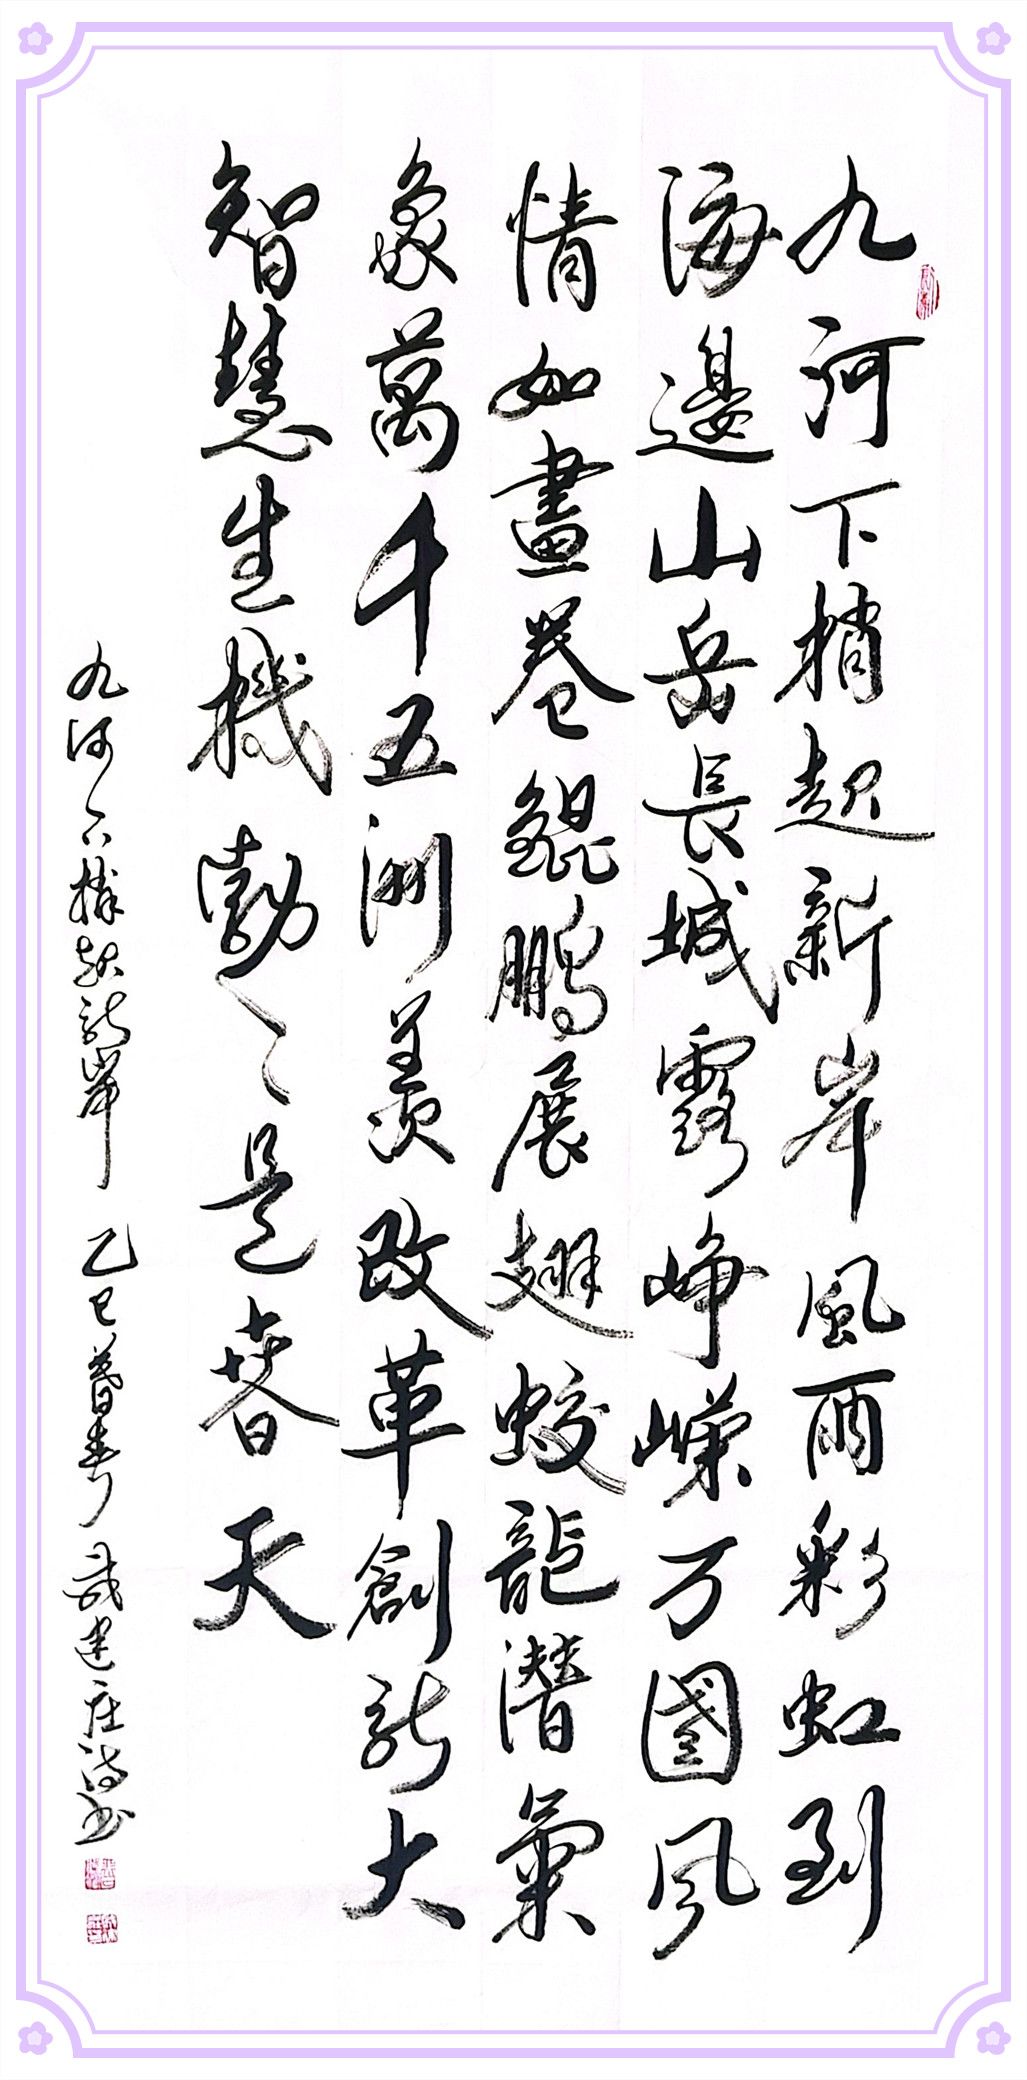 九河下梢起新岸風雨彩虹到
海邊山岳長城露崢嶸万國風
情如畫卷鯤鵬展翅蛟龍潛氣
象萬千五洲羡改革創新大
智慧生機勃〻是春天
九河下梢起新岸 乙巳暮春 武建庄詩書